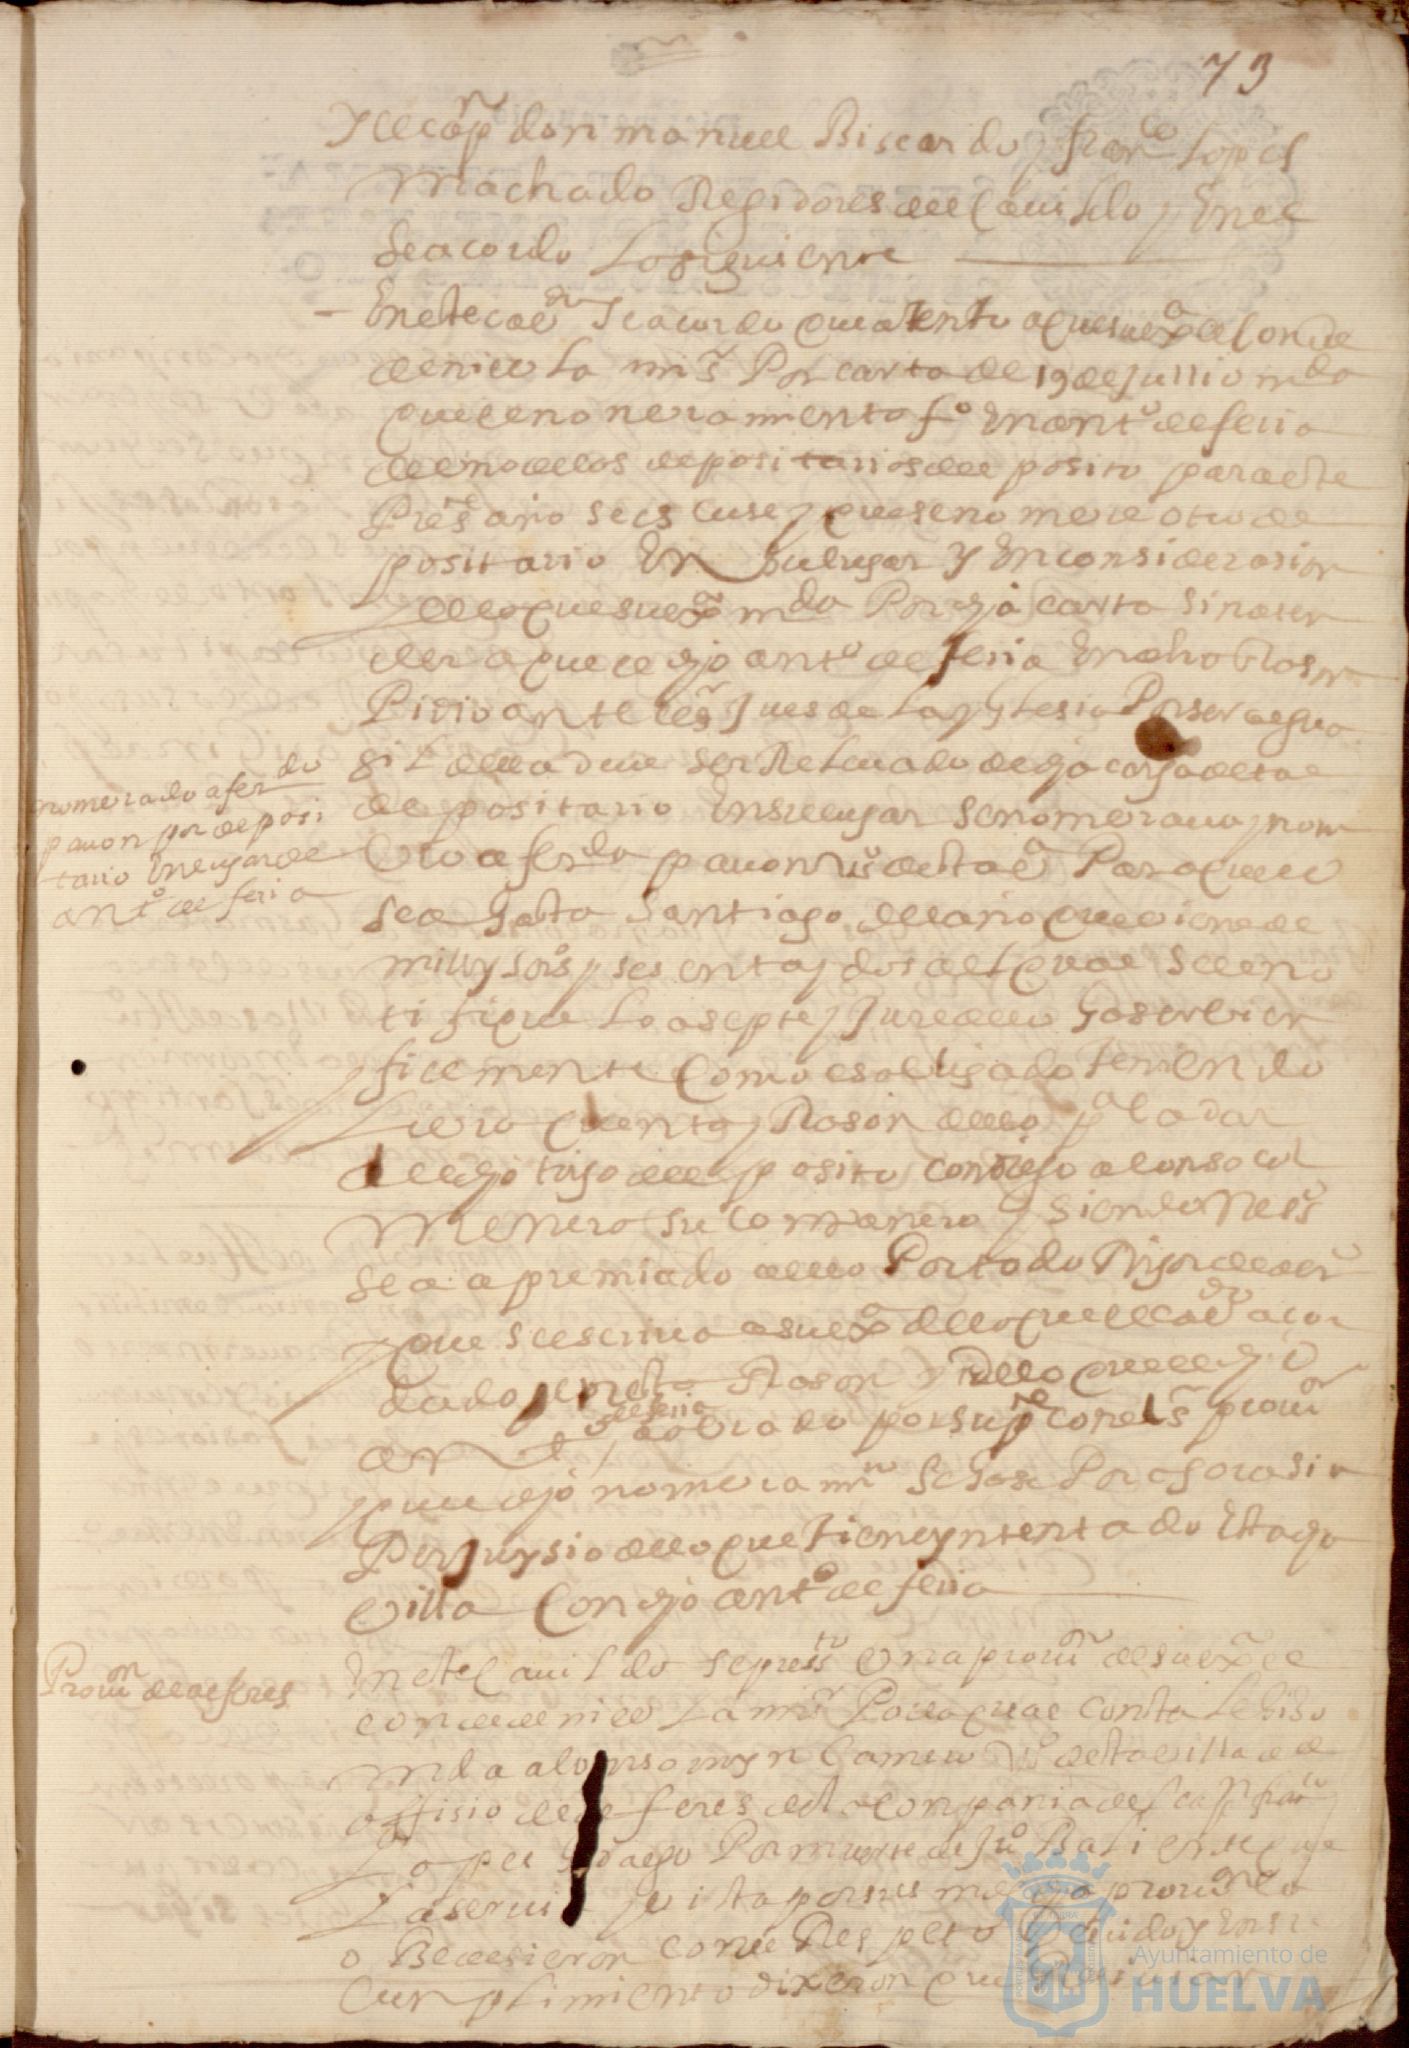 73
Y el capn don manuel Biscardo y franco Lopes
Machado Regidores deel Cauildo y En el
se acordo Lo siguiente
– En este caudo se acordo que atento a que su exa el Conde
de nieula mi sr Por carta de 19 de Jullio mdo
que el nonbramiento fo En anto de feria
de vno de los depositarios del posito para este
Preste año se escuse y que se nombre otro de
positario En su lugar y En consideracion
de lo que su exa mdo Por dja carta sin aten
der a que el djo anto de feria En
Pidio ante el sr Jues de La yglesia Por ser algua
sil della deue ser Releuado de dja carga de tal
depositario En su lugar se nombraua y nom
bro a ferdo pauon vo desta va Para que lo
sea Hasta Santiago del año que viene de
mill y seis y sesenta y dos al qual se le no
tifique Lo asepte y Jure de lo Haser bien
fielmente Como es obligado teniendo
Libro quenta y Rason dello pa la dar
del djo trigo del posito con djo alonso col
menero su conpanero y siendo Nesso
sea apremiado a ello Por todo Rigor de dero
y que se escriua a su exa de lo que el caudo a acor
dado y de esta Rason y de lo que el djo
anto de feria a obrado por su pte con el sr prouor
y que djo nombramto se Hase Por agora sin
Perjuysio de lo que tiene yntentado Esta dja
Villa Con djo anto de feria
nombrado a ferdo
pauon por deposi
tario En lugar de
anto de feria
Prouon de alferes
En este Cauildo se presto Una prouon de su exa el
conde de nieula mi sr Por la qual Consta Le Hiso
md a alonso myn Camero vo desta villa de el
offisio de alferes de la Compania del capn franco
Lopes Hidalgo Por muerte de Juo Baliente que
La seruia y vista por sus mds dja prouon La
oBedesieron con el Respeto Deuido y En su
Cunplimiento dixeron que
Ayuntamiento de
HUELVA